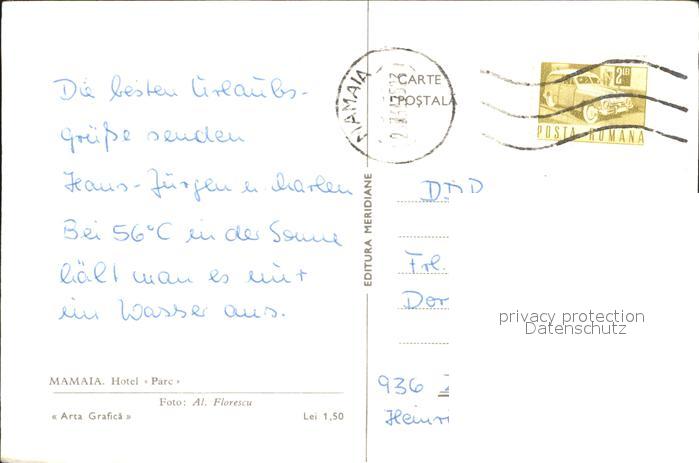 Die besten Urlaubs-
grüße senden
Hans-Jürgen u. Marlen
Bei 56°C in der Sonne
hält man es nur
im Wasser aus.
MAMAIA. Hotel «Parc»
Foto: Al. Florescu
« Arta Grafică »
Lei 1,50
EDITURA MERIDIANE
CARTE
POȘTALĂ
MAMAIA
2 LEI
POSTA ROMANA
DDR
Frl.
Dor
936
Heinri
privacy protection
Datenschutz